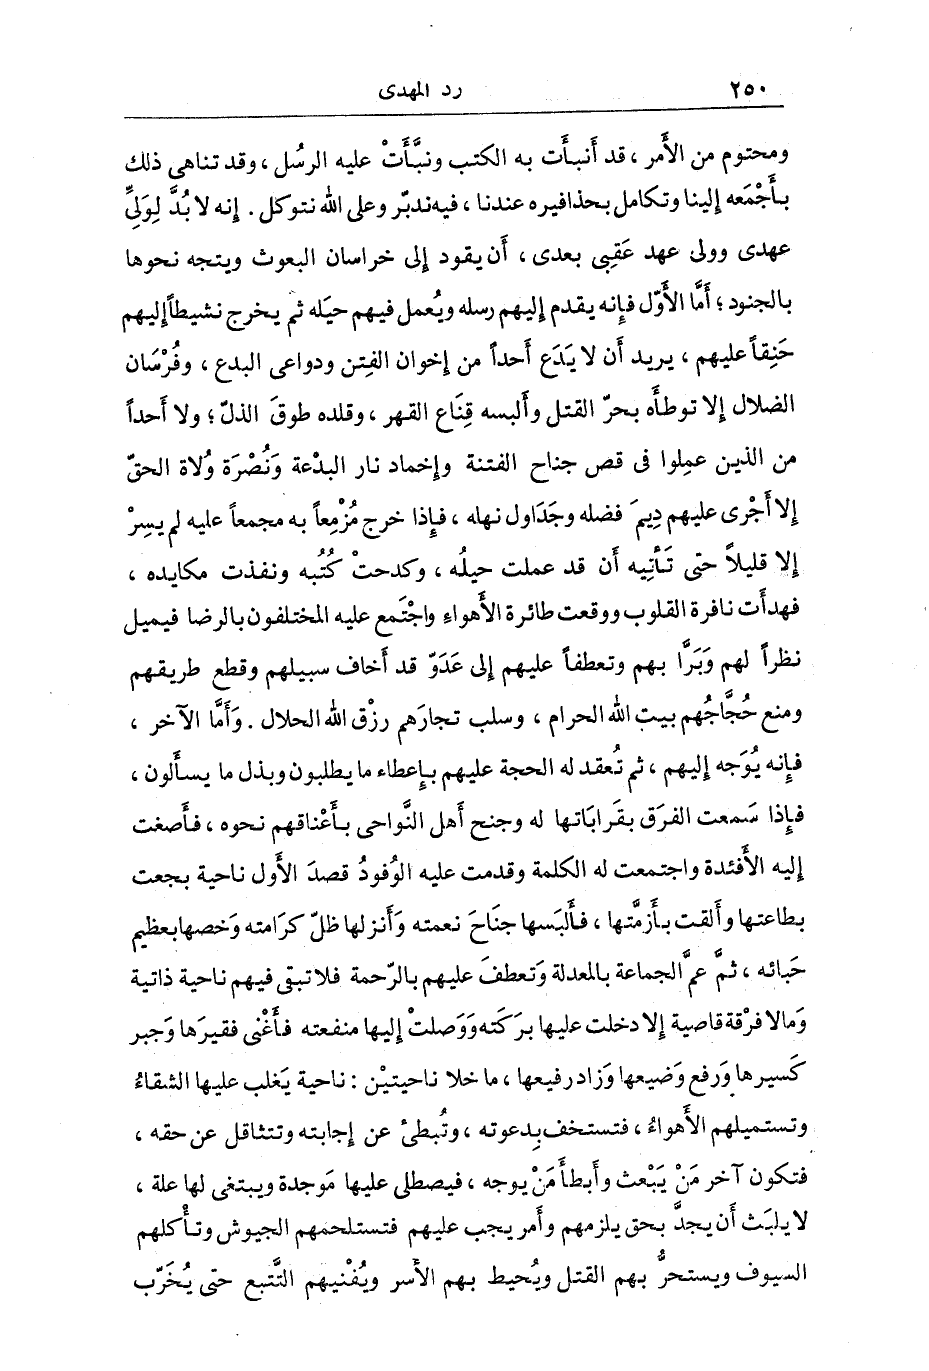 ٢٥٠ رد المهدى
ومحتوم من الأَمر ، قد أَنبأَت به الكتب ونبَّأَتْ عليه الرسُل ، وقد تناهى ذلك
بأَجْمَعه إلينا وتكامل بحذافيره عندنا ، فبه ندبّر وعلى الله نتوكل . إنه لا بُدَّ لِوَلىِّ
عهدى وولى عهد عَقِبى بعدى ، أَن يقود إلى خراسان البعوث ويتجه نحوها
بالجنود ؛ أَمَّا الأَوّل فإنه يقدم إليهم رسله ويُعمل فيهم حيَله ثم يخرج نشيطاً إليهم
حَنِقاً عليهم ، يريد أَن لا يَدَع أَحداً من إخوان الفِتن ودواعى البدع ، وفُرْسَان
الضلال إلا توطأَه بحرّ القتل وأَلبسه قِنَاع القهر ، وقلده طوقَ الذلّ ؛ ولا أَحداً
من الذين عمِلوا فى قص جناح الفتنة وإخماد نار البدْعة وَنُصْرَة وُلاة الحقّ
إلا أَجْرى عليهم دِيمَ فضله وجَدَاول نهله ، فإذا خرج مُزْمِعاً به مجمعاً عليه لم يسِرْ
إلا قليلاً حتى تَأْتِيه أَن قد عملت حيلُه ، وكدحتْ كُتُبه ونفذت مكايده ،
فهدأَت نافرة القلوب ووقعت طائرة الأَهواءِ واجْتَمع عليه المختلفون بالرضا فيميل
نظراً لهم وَبَرًّا بهم وتعطفاً عليهم إلى عَدَوّ قد أَخاف سبيلهم وقطع طريقهم
ومنع حُجَّاجُهم بيت الله الحرام ، وسلب تجارَهم رزْق الله الحلال . وَأَمَّا الآخر ،
فإنه يُوَجه إليهم ، ثم تُعقد له الحجة عليهم بإعطاء ما يطلبون وبذل ما يسأَلون ،
فإذا سَمعت الفرَق بقَرابَاتها له وجنح أَهل النَّواحى بأَعْناقهم نحوه ، فأَصغت
إليه الأَفئدة واجتمعت له الكلمة وقدمت عليه الوُفودُ قصدَ الأَول ناحية بجعت
بطاعتها وأَلقت بأَزمَّتها ، فأَلبَسها جنَاحَ نعمته وَأَنزلها ظلّ كرَامته وَخصها بعظيم
حَبائه ، ثمَّ عمَّ الجماعة بالمعدلة وَتعطفَ عليهم بالرّحمة فلا تبقى فيهم ناحية دَانية
وَما لا فرْقة قاصية إلا دخلت عليها برَكته وَوَصلتْ إليها منفعته فأَغْنى فقيرَها وَجبر
كَسيرها وَرفع وَضيعها وَزاد رفيعها ، ما خلا ناحيتيْن : ناحية يَغلب عليها الشقاءُ
وتستميلهم الأَهواءُ ، فتستخف بِدعوته ، وتُبطئ عن إجابته وتتثاقل عن حقه ،
فتكون آخر مَنْ يَبْعث وأَبطأَ مَنْ يوجه ، فيصطلى عليها مَوجدة ويبتغى لها علة ،
لا يلبَث أَن يجدَّ بحق يلزمهم وأَمر يجب عليهم فتستلحمهم الجيوش وتأْكلهم
السيوف ويستحرُّ بهم القتل ويُحيط بهم الأَسر ويُفْنيهم التَّتبع حتى يُخَرّب